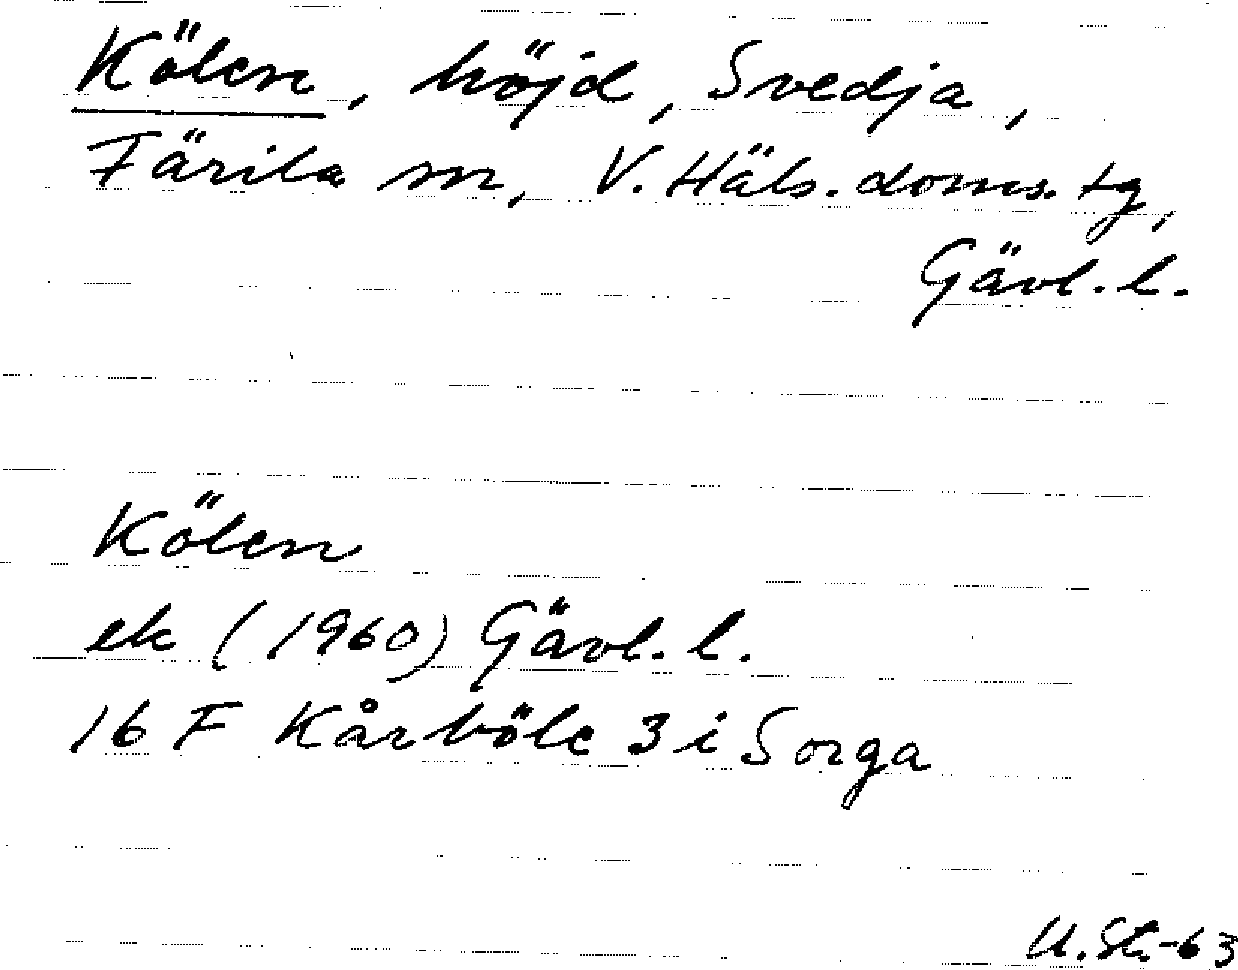 Kölen, höjd, Svedja,
Färila sn, V. Häls. doms. tg,
Gävl. l.
Kölen
ek (1960) Gävl. l.
16 F Kårböle 3 i Sorga
U. St. -63